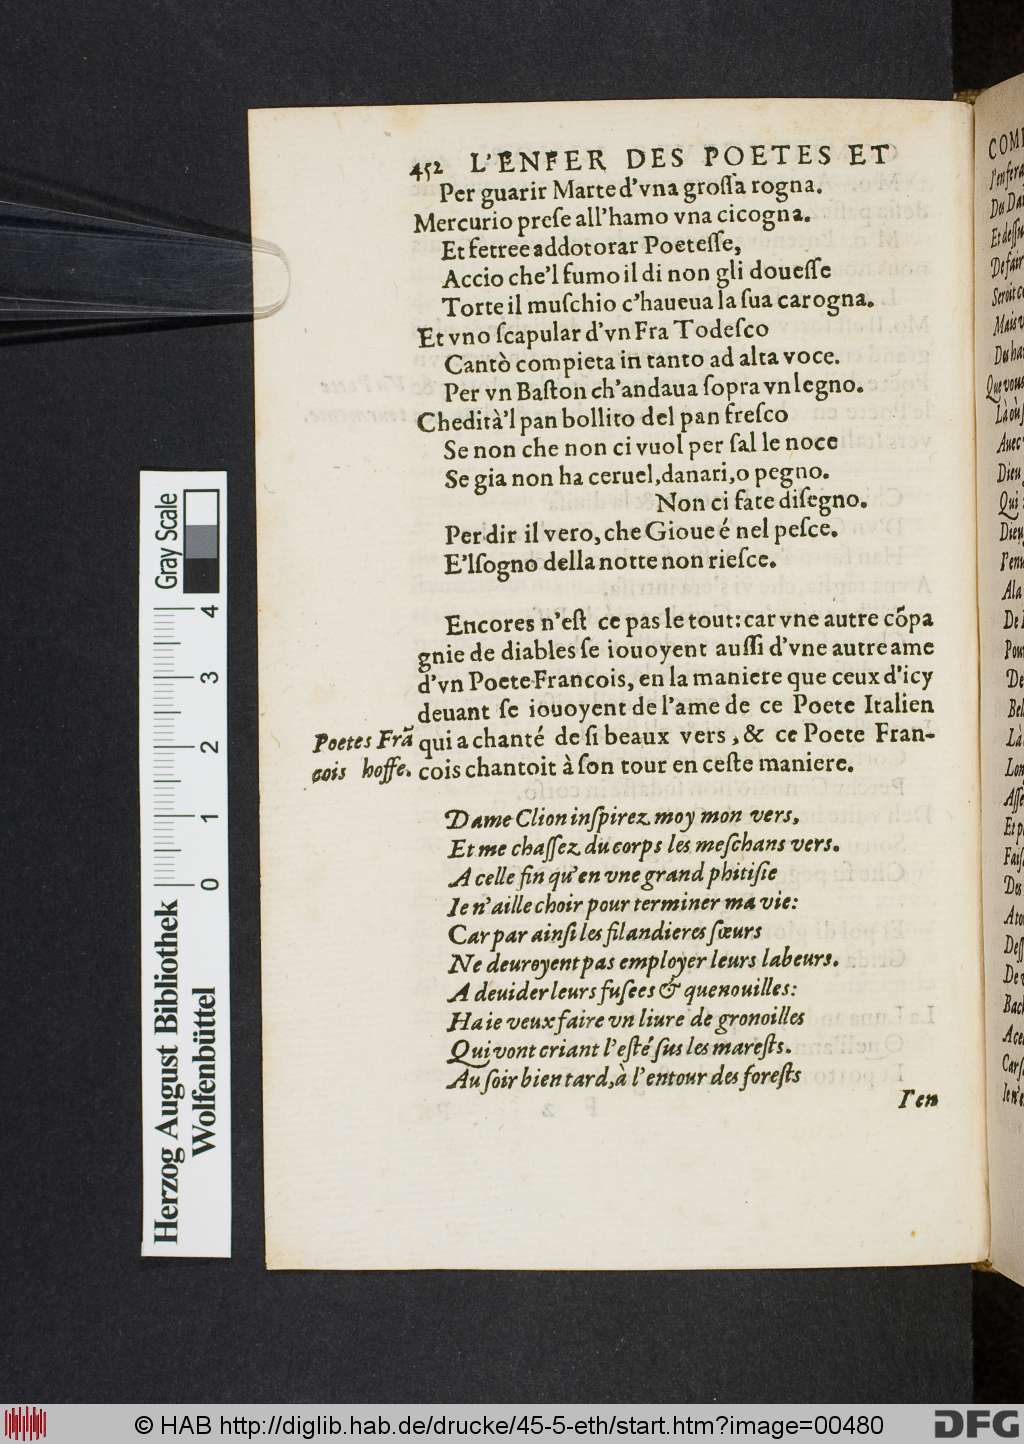 452 L'ENFER DES POETES ET
Per guarir Marte d'vna grossa rogna.
Mercurio prese all'hamo vna cicogna.
Et fetree addotorar Poetesse,
Accio che'l fumo il di non gli douesse
Torte il muschio c'haueua la sua carogna.
Et vno scapular d'vn Fra Todesco
Cantò compieta in tanto ad alta voce.
Per vn Baston ch'andaua sopra vn legno.
Chedità'l pan bollito del pan fresco
Se non che non ci vuol per sal le noce
Se gia non ha ceruel, danari, o pegno.
Non ci fate disegno.
Per dir il vero, che Gioue é nel pesce.
E'lsogno della notte non riesce.
Encores n'est ce pas le tout: car vne autre cõpa
gnie de diables se iouoyent aussi d'vne autre ame
d'vn Poete Francois, en la maniere que ceux d'icy
deuant se iouoyent de l'ame de ce Poete Italien
Poetes Frã
cois hosse.
qui a chanté de si beaux vers, & ce Poete Fran-
cois chantoit à son tour en ceste maniere.
Dame Clion inspirez moy mon vers,
Et me chassez du corps les meschans vers.
A celle fin qu'en vne grand phitisie
Ie n'aille choir pour terminer ma vie:
Car par ainsi les filandieres sœurs
Ne deuroyent pas employer leurs labeurs.
A deuider leurs fusees & quenouilles:
Ha ie veux faire vn liure de gronoilles
Qui vont criant l'esté sus les marests.
Au soir bien tard, à l'entour des forests
I'en
Gray Scale
0 1 2 3 4
Herzog August Bibliothek
Wolfenbüttel
© HAB http://diglib.hab.de/drucke/45-5-eth/start.htm?image=00480
DFG